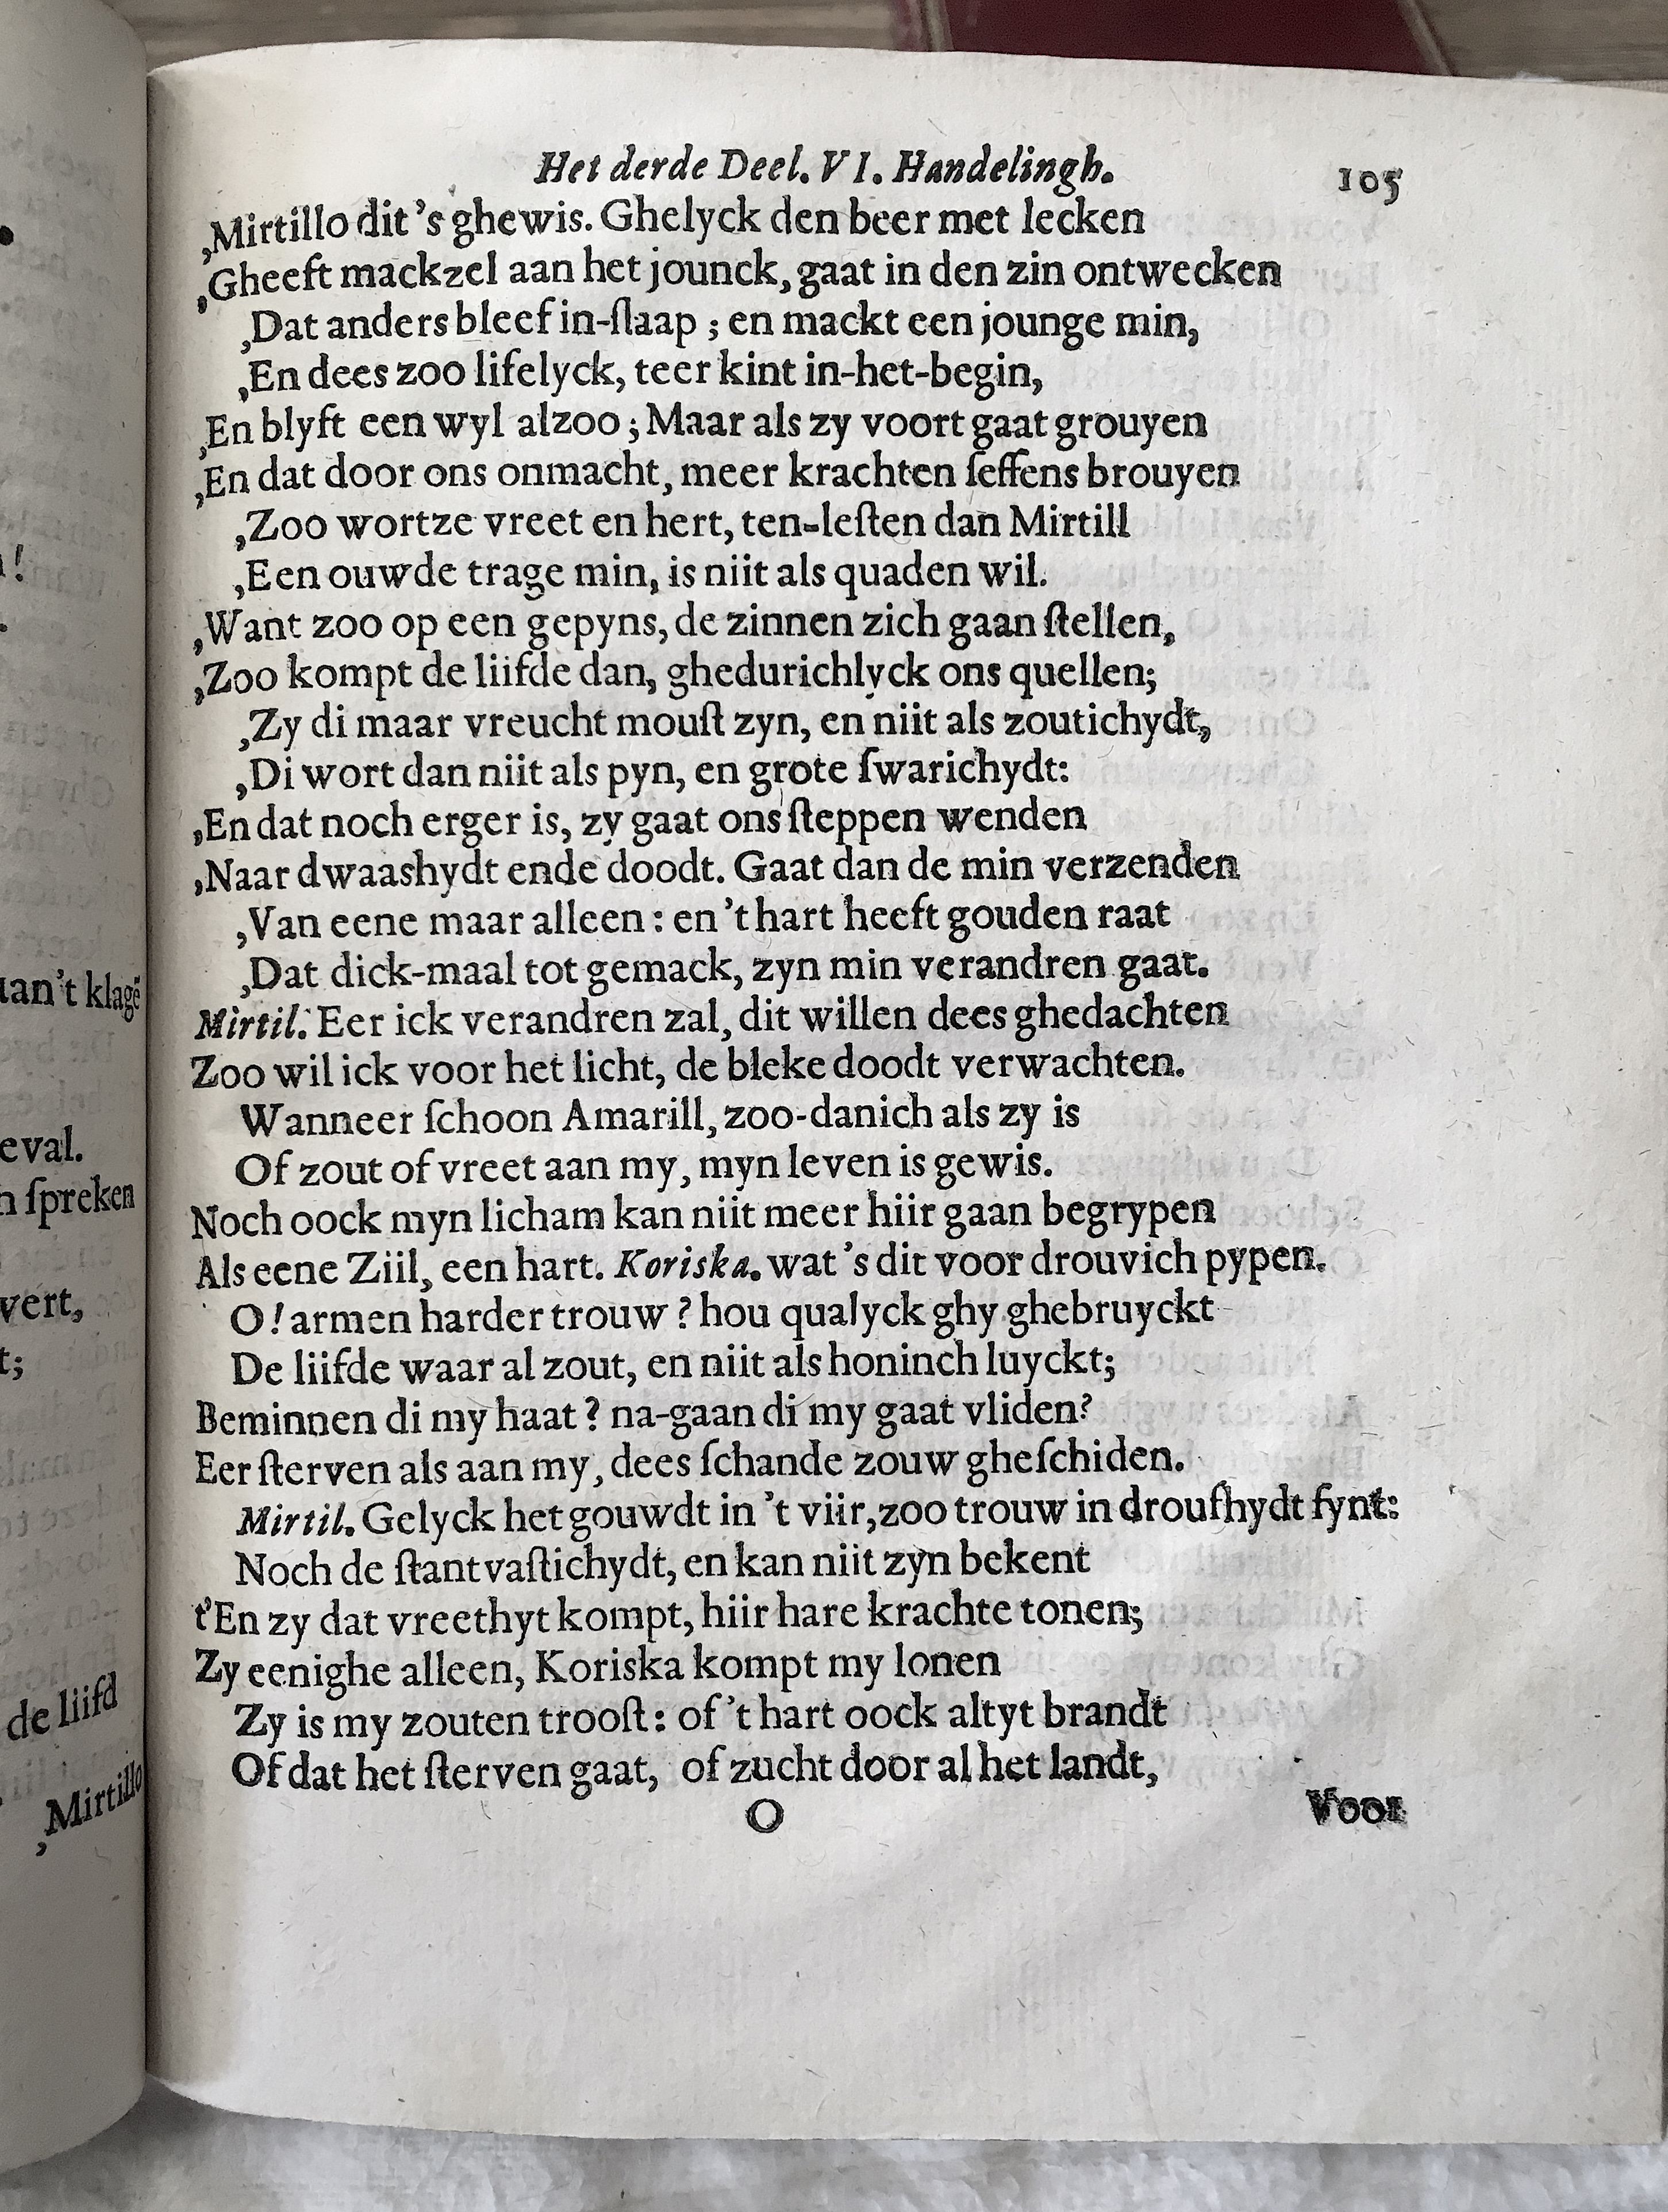 Het derde Deel. VI. Handelingh. 105
,Mirtillo dit 's ghewis. Ghelyck den beer met lecken
,Gheeft mackzel aan het jounck, gaat in den zin ontwecken
,Dat anders bleef in-ſlaap ; en mackt een jounge min,
,En dees zoo lifelyck, teer kint in-het-begin,
,En blyft een wyl alzoo ; Maar als zy voort gaat grouyen
,En dat door ons onmacht, meer krachten ſeffens brouyen
,Zoo wortze vreet en hert, ten-leſten dan Mirtill
,Een ouwde trage min, is niit als quaden wil.
,Want zoo op een gepyns, de zinnen zich gaan ſtellen,
,Zoo kompt de liifde dan, ghedurichlyck ons quellen;
,Zy di maar vreucht mouſt zyn, en niit als zoutichydt,
,Di wort dan niit als pyn, en grote ſwarichydt:
,En dat noch erger is, zy gaat ons ſteppen wenden
,Naar dwaashydt ende doodt. Gaat dan de min verzenden
,Van eene maar alleen : en 't hart heeft gouden raat
,Dat dick-maal tot gemack, zyn min verandren gaat.
Mirtil. Eer ick verandren zal, dit willen dees ghedachten
Zoo wil ick voor het licht, de bleke doodt verwachten.
Wanneer ſchoon Amarill, zoo-danich als zy is
Of zout of vreet aan my, myn leven is gewis.
Noch oock myn licham kan niit meer hiir gaan begrypen
Als eene Ziil, een hart. Koriska. wat 's dit voor drouvich pypen.
O! armen harder trouw ? hou qualyck ghy ghebruyckt
De liifde waar al zout, en niit als honinch luyckt;
Beminnen di my haat ? na-gaan di my gaat vliden?
Eer ſterven als aan my, dees ſchande zouw gheſchiden.
Mirtil. Gelyck het gouwdt in 't viir, zoo trouw in droufhydt fynt:
Noch de ſtantvaſtichydt, en kan niit zyn bekent
t'En zy dat vreethyt kompt, hiir hare krachte tonen;
Zy eenighe alleen, Koriska kompt my lonen
Zy is my zouten trooſt : of 't hart oock altyt brandt
Of dat het ſterven gaat, of zucht door al het landt,
O Voor
!
uan't klagē
eval.
ſpreken
vert,
t;
de liifd
,Mirtillo